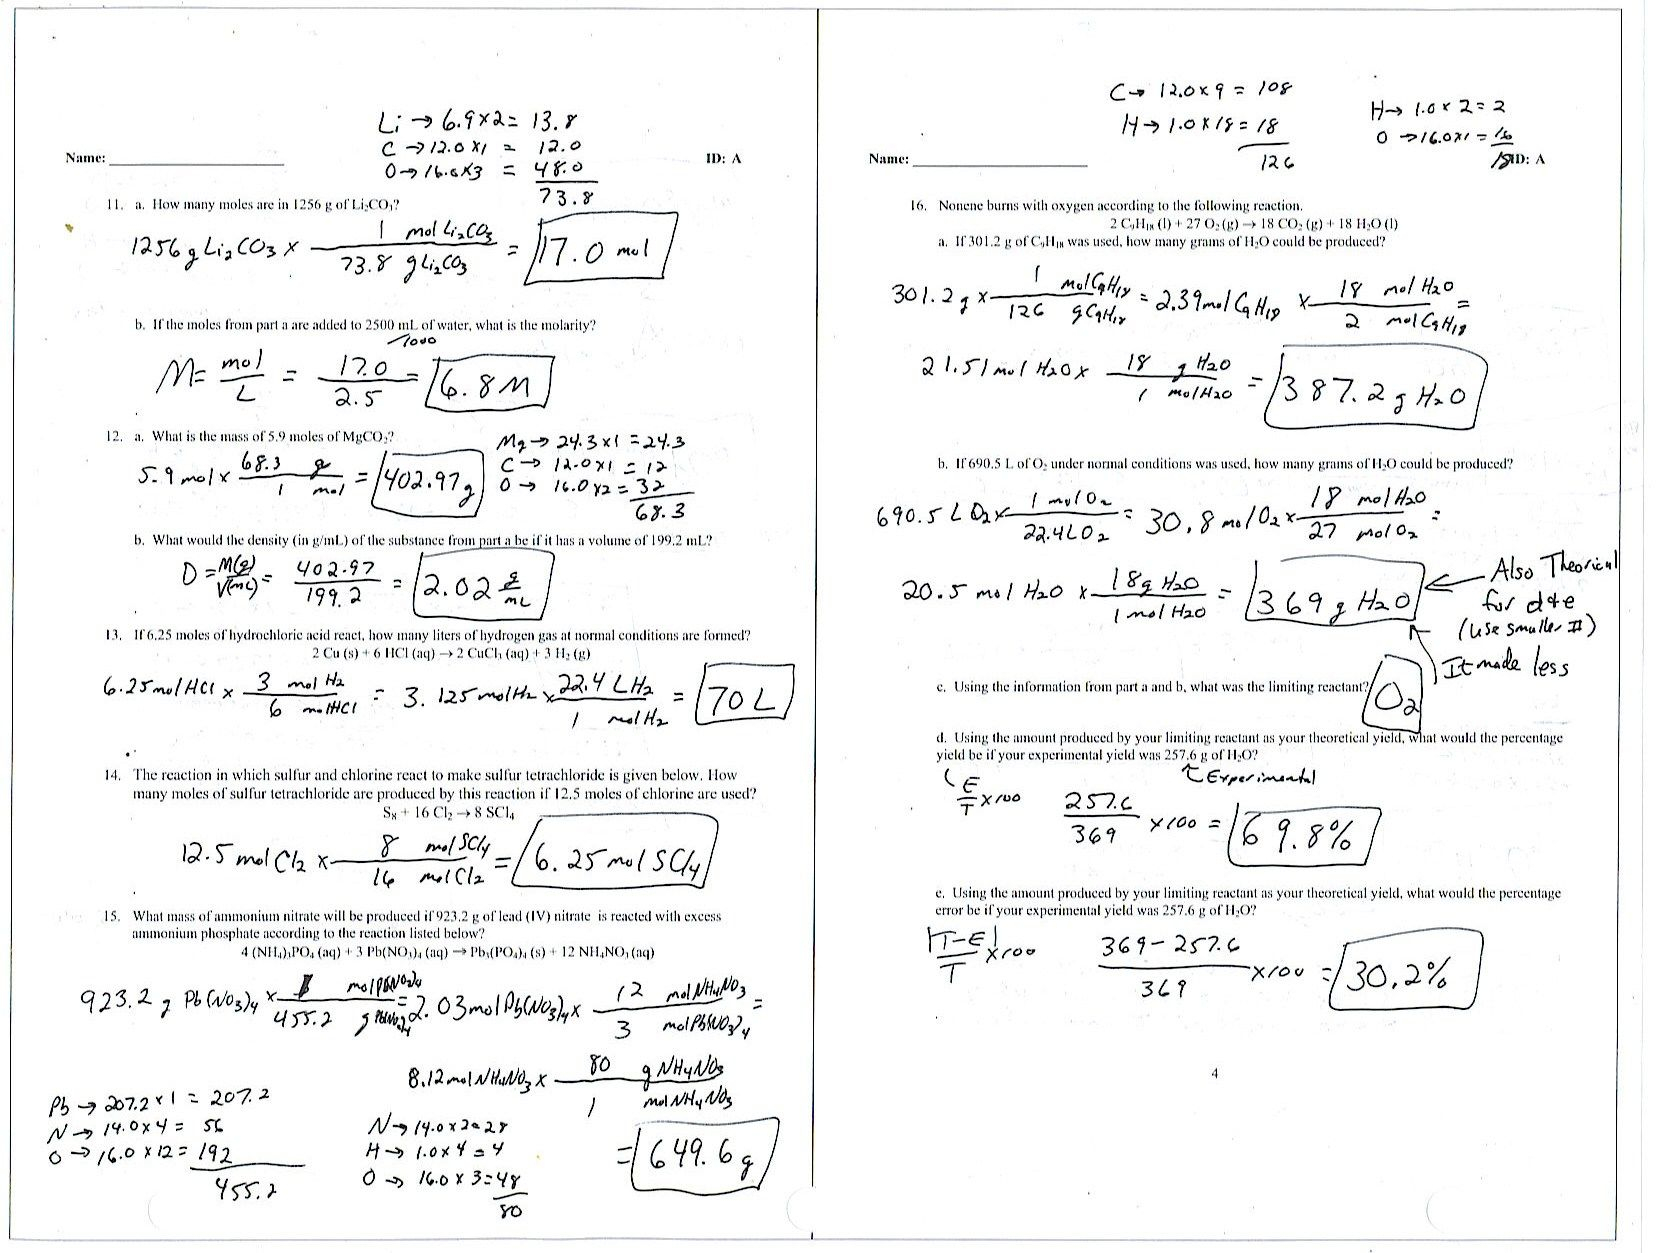 Li → 6.9x2 = 13.8
C → 12.0 x1 = 12.0
Name: ____________ O → 16.0x3 = 48.0 ID: A
73.8
11. a. How many moles are in 1256 g of Li₂CO₃?
1256 g Li₂CO₃ x 1 mol Li₂CO₃ / 73.8 g Li₂CO₃ = 17.0 mol
b. If the moles from part a are added to 2500 mL of water, what is the molarity?
/1000
M = mol / L = 17.0 / 2.5 = 6.8 M
12. a. What is the mass of 5.9 moles of MgCO₂?
Mg → 24.3 x1 = 24.3
C → 12.0 x1 = 12
O → 16.0 x2 = 32
68.3
5.9 mol x 68.3 g / 1 mol = 402.97 g
b. What would the density (in g/mL) of the substance from part a be if it has a volume of 199.2 mL?
D = M(g) / V(mL) = 402.97 / 199.2 = 2.02 g / mL
13. If 6.25 moles of hydrochloric acid react, how many liters of hydrogen gas at normal conditions are formed?
2 Cu (s) + 6 HCl (aq) → 2 CuCl₃ (aq) + 3 H₂ (g)
6.25 mol HCl x 3 mol H₂ / 6 mol HCl = 3.125 mol H₂ x 22.4 L H₂ / 1 mol H₂ = 70 L
14. The reaction in which sulfur and chlorine react to make sulfur tetrachloride is given below. How
many moles of sulfur tetrachloride are produced by this reaction if 12.5 moles of chlorine are used?
S₈ + 16 Cl₂ → 8 SCl₄
12.5 mol Cl₂ x 8 mol SCl₄ / 16 mol Cl₂ = 6.25 mol SCl₄
15. What mass of ammonium nitrate will be produced if 923.2 g of lead (IV) nitrate is reacted with excess
ammonium phosphate according to the reaction listed below?
4 (NH₄)₃PO₄ (aq) + 3 Pb(NO₃)₄ (aq) → Pb₃(PO₄)₄ (s) + 12 NH₄NO₃ (aq)
923.2 g Pb(NO₃)₄ x 1 mol Pb(NO₃)₄ / 455.2 g Pb(NO₃)₄ = 2.03 mol Pb(NO₃)₄ x 12 mol NH₄NO₃ / 3 mol Pb(NO₃)₄ =
8.12 mol NH₄NO₃ x 80 g NH₄NO₃ / 1 mol NH₄NO₃
= 649.6 g
Pb → 207.2 x 1 = 207.2
N → 14.0 x 4 = 56
O → 16.0 x 12 = 192
455.2
N → 14.0 x 2 = 28
H → 1.0 x 4 = 4
O → 16.0 x 3 = 48
80
C → 12.0 x 9 = 108
H → 1.0 x 18 = 18
126
H → 1.0 x 2 = 2
O → 16.0 x1 = 16
18
Name: ____________ ID: A
16. Nonene burns with oxygen according to the following reaction.
2 C₉H₁₈ (l) + 27 O₂ (g) → 18 CO₂ (g) + 18 H₂O (l)
a. If 301.2 g of C₉H₁₈ was used, how many grams of H₂O could be produced?
301.2 g x 1 mol C₉H₁₈ / 126 g C₉H₁₈ = 2.39 mol C₉H₁₈ x 18 mol H₂O / 2 mol C₉H₁₈ =
21.51 mol H₂O x 18 g H₂O / 1 mol H₂O = 387.2 g H₂O
b. If 690.5 L of O₂ under normal conditions was used, how many grams of H₂O could be produced?
690.5 L O₂ x 1 mol O₂ / 22.4 L O₂ = 30.8 mol O₂ x 18 mol H₂O / 27 mol O₂ =
20.5 mol H₂O x 18 g H₂O / 1 mol H₂O = 369 g H₂O
← Also Theorical
for d+e
(use smaller #)
It made less
c. Using the information from part a and b, what was the limiting reactant? O₂
d. Using the amount produced by your limiting reactant as your theoretical yield, what would the percentage
yield be if your experimental yield was 257.6 g of H₂O?
Experimental
E / T x 100 257.6 / 369 x 100 = 69.8%
e. Using the amount produced by your limiting reactant as your theoretical yield, what would the percentage
error be if your experimental yield was 257.6 g of H₂O?
|T-E| / T x 100 369 - 257.6 / 369 x 100 = 30.2%
4